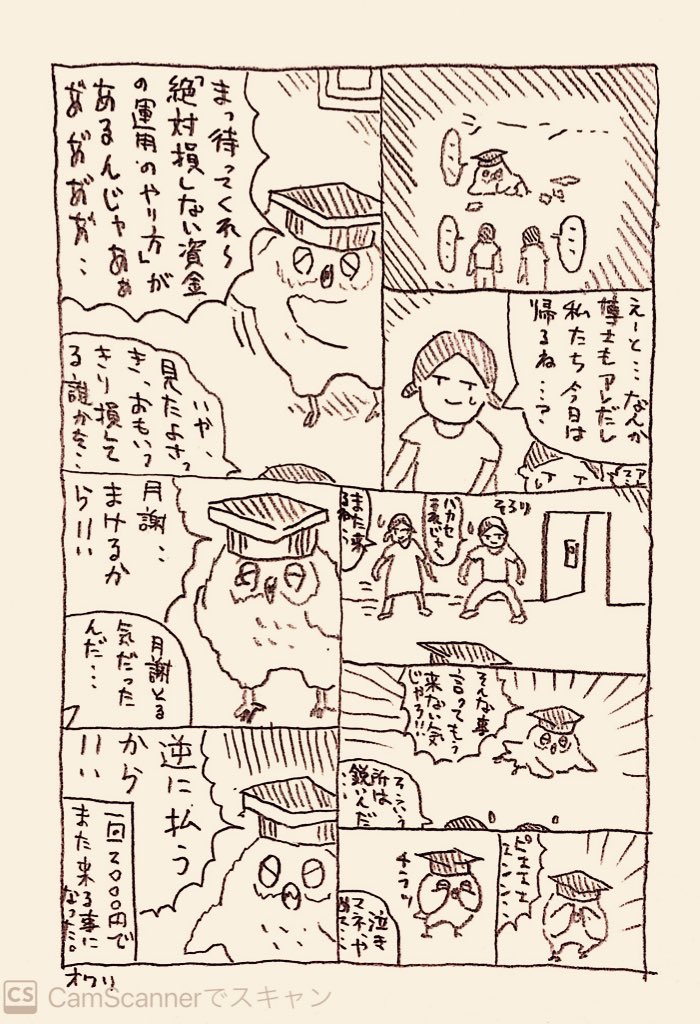 シーーーン…
えーと…なんか
博士もアレだし
私たち今日は
帰るね…?
そろり
ハカセ
また来
るね…
そんな事
言ってもう
来ない気
じゃろ!!
そういう
所は
鋭いんだ
ピエエエ
チラリ
泣き
マネや
めて…
まっ待ってくれ〜
「絶対損しない資金
の運用のやり方」が
あるんじゃあぁ
あ゛あ゛あ゛あ゛…
いや、
見たよさっ
き、おもいっ
きり損して
る誰かを…
月謝…
まけるか
ら!!
月謝とる
気だった
んだ…
逆に払う
から
!!
一回2000円で
また来る事に
なった。
オワリ
CS CamScannerでスキャン